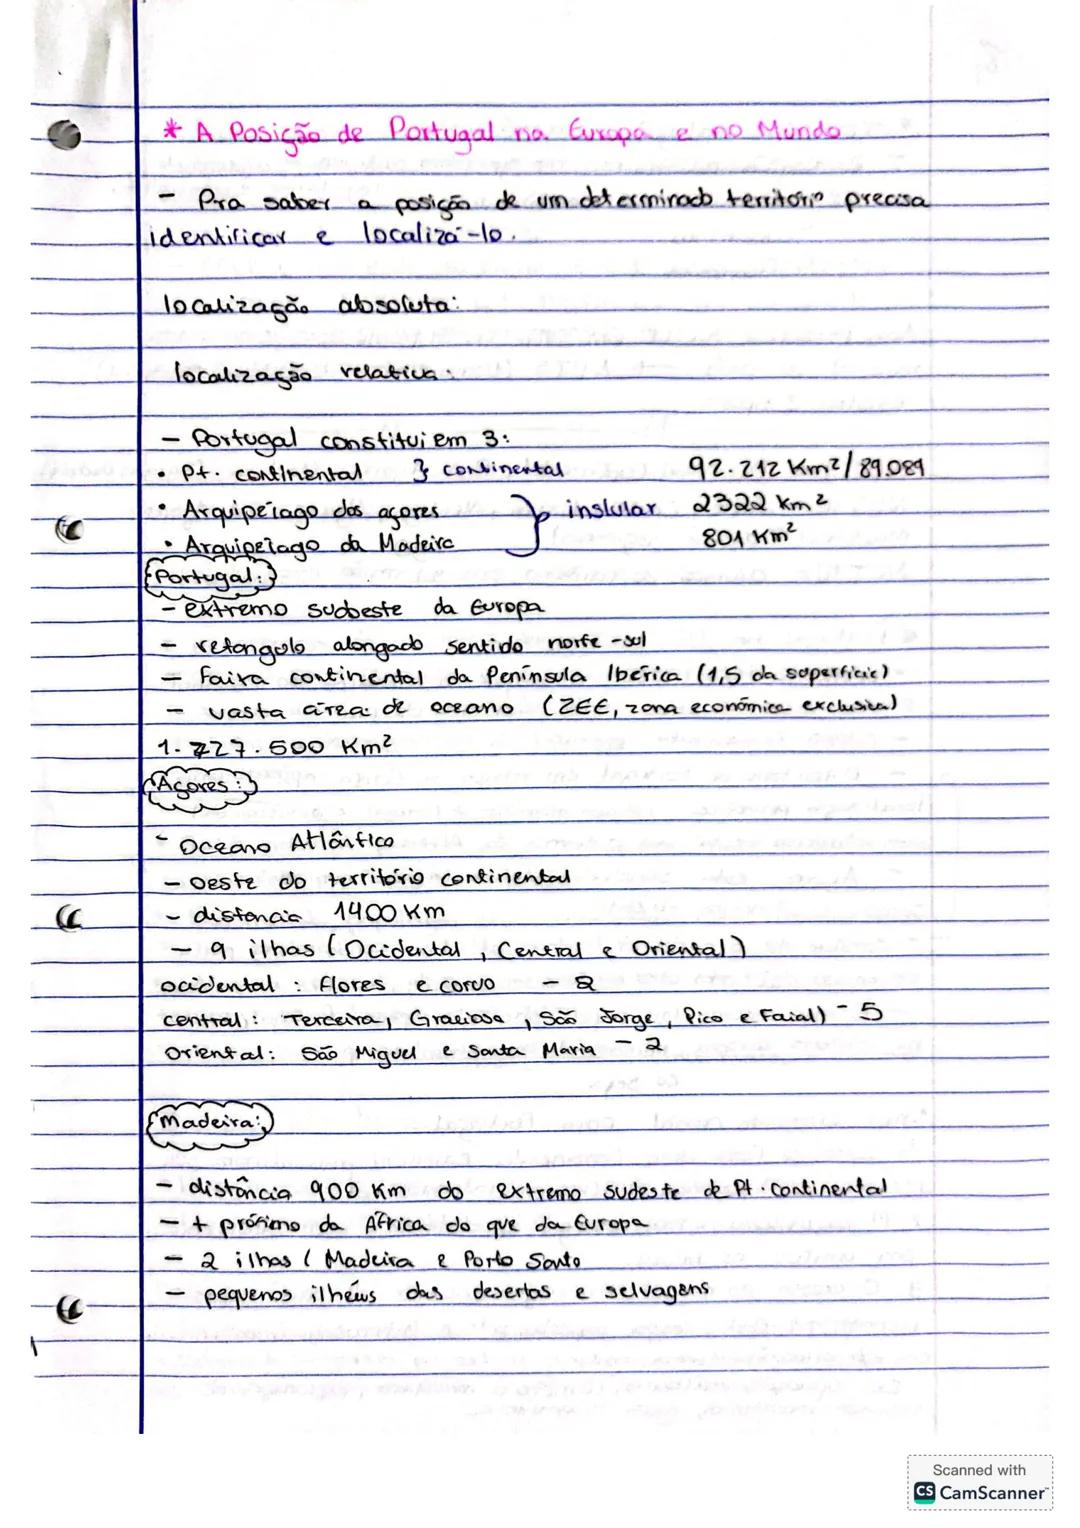 * A Posição de Portugal na Europa e no Mundo
- Pra saber a posição de um determinado território precisa
identificar e localizá-lo.
localização absoluta:
localização relativa:
- Portugal constitui em 3:
• Pt. continental } continental 92.212 Km²/89.089
• Arquipélago dos açores } inslular 2322 km²
• Arquipélago da Madeira 801 Km²
Portugal:
- extremo sudoeste da Europa
- retangulo alongado sentido norte-sul
- Faixa continental da Península Ibérica (1,5 da superficie)
- vasta área de oceano (ZEE, zona económica exclusiva)
1.727.500 Km²
Açores:
- Oceano Atlântico
- Oeste do território continental
- distancia 1400 Km
- 9 ilhas (Ocidental, Central e Oriental)
ocidental: flores e corvo - 2
central: Terceira, Graciosa, São Jorge, Pico e Faial) - 5
Oriental: São Miguel e Santa Maria - 2
Madeira:
- distância 900 Km do extremo sudeste de Pt. Continental
- + prósimo da África do que da Europa
- 2 ilhas (Madeira e Porto Santo
- pequenos ilhéus das desertas e selvagens
Scanned with
CS CamScanner